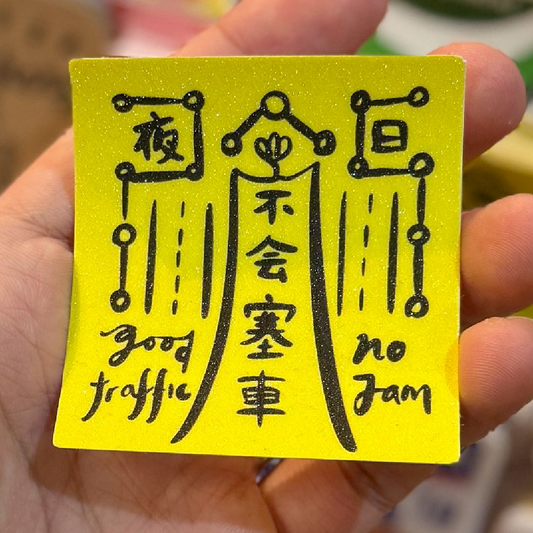 夜
日
不会塞車
good
traffic
no
Jam